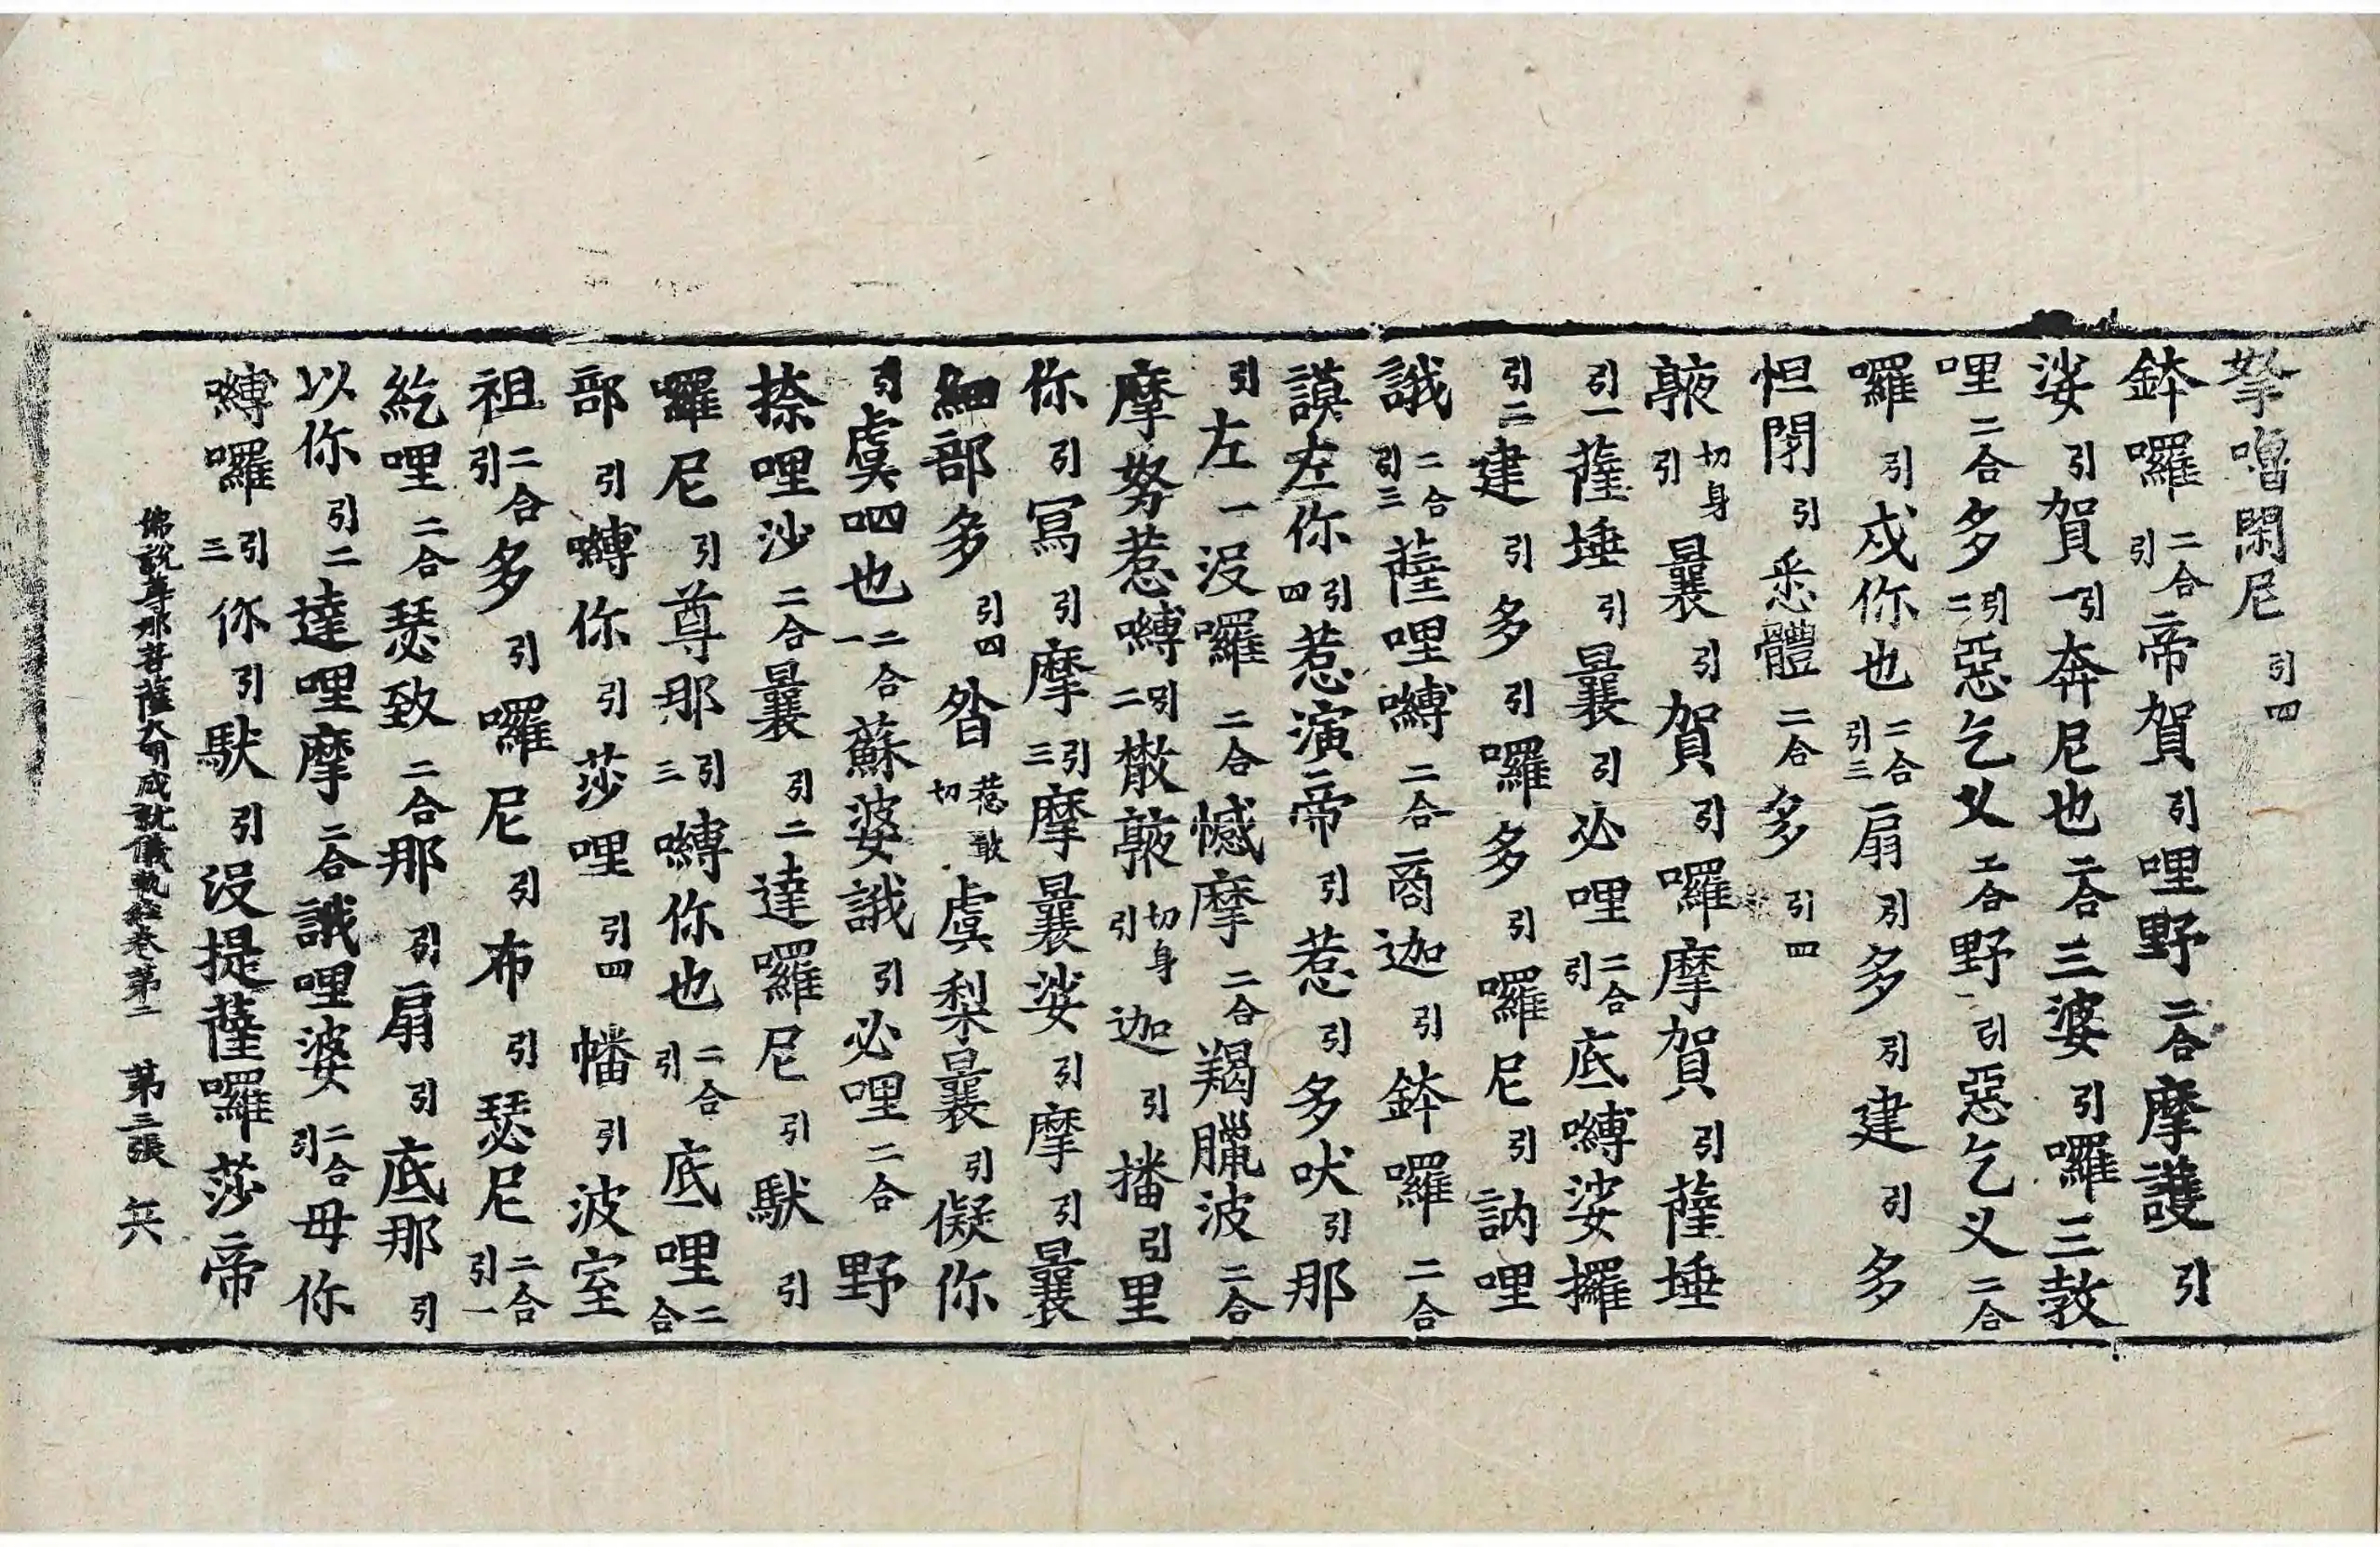 拏嚕閑尼引四
鉢囉二合引帝賀引哩野二合摩護引
娑引賀引一奔尼也二合三婆引囉三敎
哩二合多引二惡乞叉二合野引惡乞叉二合
囉引成你也二合引三扇引多引建引多
怛閉引悉體二合多引四
䫂切身引曩引賀引囉摩賀引薩埵
引一薩埵引曩引必哩二合引底嚩娑擢
引二建引多引囉多引囉尼引訥哩
誐二合引三薩哩嚩二合商迦引鉢囉二合
謨左你引四惹演帝引惹引多吠引那
引左一沒囉二合憾摩二合羯臘波二合
摩努惹嚩引二散䫂切身引迦引播引里
你引寫引摩引三摩曩娑引摩引曩
細部多引四昝惹敢切虞梨曩引儗你
引虞呬也二合一蘇婆誐引必哩二合野
捺哩沙二合曩引二達囉尼引馱引
囉尼引尊那引三嚩你也二合引底哩二合
部引嚩你引莎哩引四幡引波室
祖二合引多引囉尼引布引瑟尼二合引一
紇哩二合瑟致二合那引扇引底那引
以你引二達哩摩二合誐哩婆二合引毋你
嚩囉引三你引馱引沒提薩囉莎帝
佛說尊那菩薩大明成就儀軌經卷第二 第三張 兵